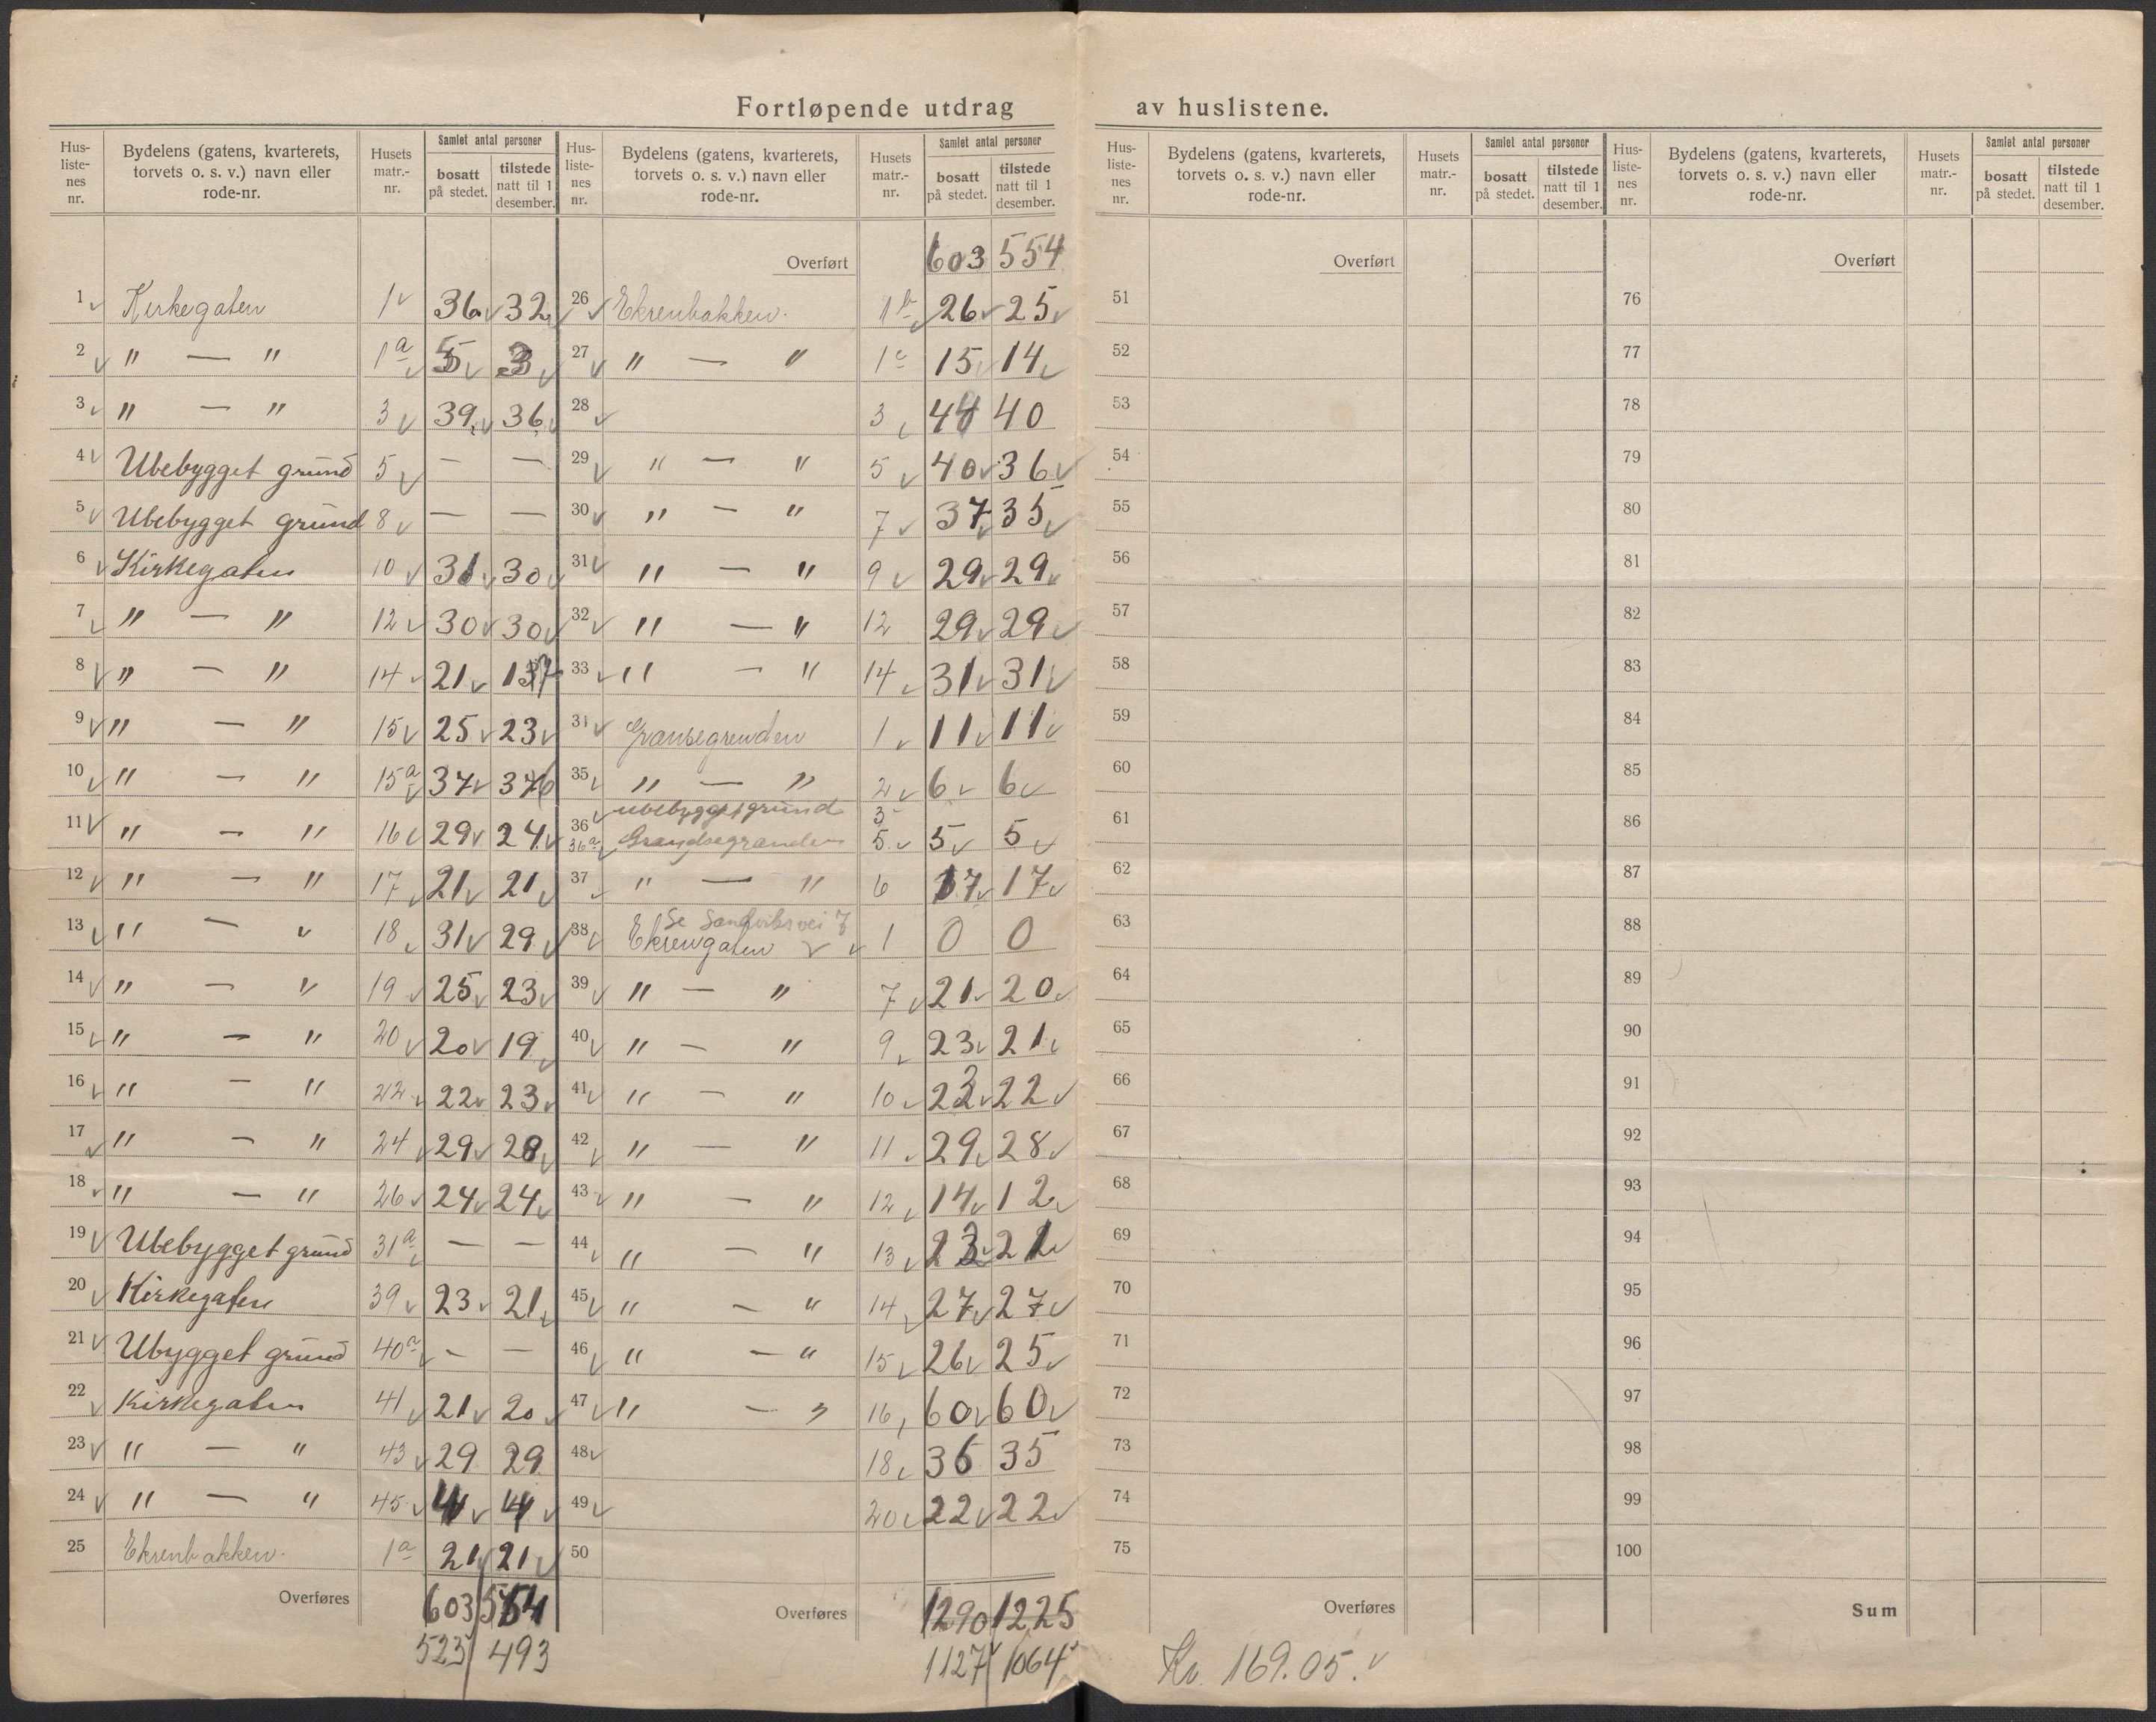 Fortløpende utdrag av huslistene.
Hus-listenes nr. | Bydelens (gatens, kvarterets, torvets o. s. v.) navn eller rode-nr. | Husets matr.-nr. | Samlet antal personer bosatt på stedet. | tilstede natt til 1 desember.
1 Kirkegaten 1 36 32
2 " — " 1a 5 3
3 " — " 3 39 36
4 Ubebygget grund 5 — —
5 Ubebygget grund 8 — —
6 Kirkegaten 10 31 30
7 " — " 12 30 30
8 " — " 14 21
9 " — " 15 25 23
10 " — " 15a 37
11 " — " 16 29 24
12 " — " 17 21 21
13 " — " 18 31 29
14 " — " 19 25 23
15 " — " 20 20 19
16 " — " 22 22 23
17 " — " 24 29 28
18 " — " 26 24 24
19 Ubebygget grund 31a — —
20 Kirkegaten 39 23 21
21 Ubygget grund 40a — —
22 Kirkegaten 41 21 20
23 " — " 43 29 29
24 " — " 45 4 4
25 Ekrenbakken. 1a 21 21
Overføres 603 554
523 493
Hus-listenes nr. | Bydelens (gatens, kvarterets, torvets o. s. v.) navn eller rode-nr. | Husets matr.-nr. | Samlet antal personer bosatt på stedet. | tilstede natt til 1 desember.
Overført 603 554
26 Ekrenbakken. 1b 26 25
27 " — " 1c 15 14
28 3 44 40
29 " — " 5 40 36
30 " — " 7 37 35
31 " — " 9 29 29
32 " — " 12 29 29
33 " — " 14 31 31
34 Grænsegrenden 1 11 11
35 " — " 2 6 6
36 ubebygget grund 3 -
36a Grændsegranden 5 5 5
37 " — " 6 17 17
Se Sandviksvei 7
38 Ekrengaten 1 0 0
39 " — " 7 21 20
40 " — " 9 23 21
41 " — " 10 23 22
42 " — " 11 29 28
43 " — " 12 14 12
44 " — " 13 23 21
45 " — " 14 27 27
46 " — " 15 26 25
47 " — " 16 60 60
48 18 36 35
49 20 22 22
50
Overføres 1290 1225
1127 1064
Hus-listenes nr. | Bydelens (gatens, kvarterets, torvets o. s. v.) navn eller rode-nr. | Husets matr.-nr. | Samlet antal personer bosatt på stedet. | tilstede natt til 1 desember.
Overført
51
52
53
54
55
56
57
58
59
60
61
62
63
64
65
66
67
68
69
70
71
72
73
74
75
Overføres
Kr. 169.05.
Hus-listenes nr. | Bydelens (gatens, kvarterets, torvets o. s. v.) navn eller rode-nr. | Husets matr.-nr. | Samlet antal personer bosatt på stedet. | tilstede natt til 1 desember.
Overført
76
77
78
79
80
81
82
83
84
85
86
87
88
89
90
91
92
93
94
95
96
97
98
99
100
Sum